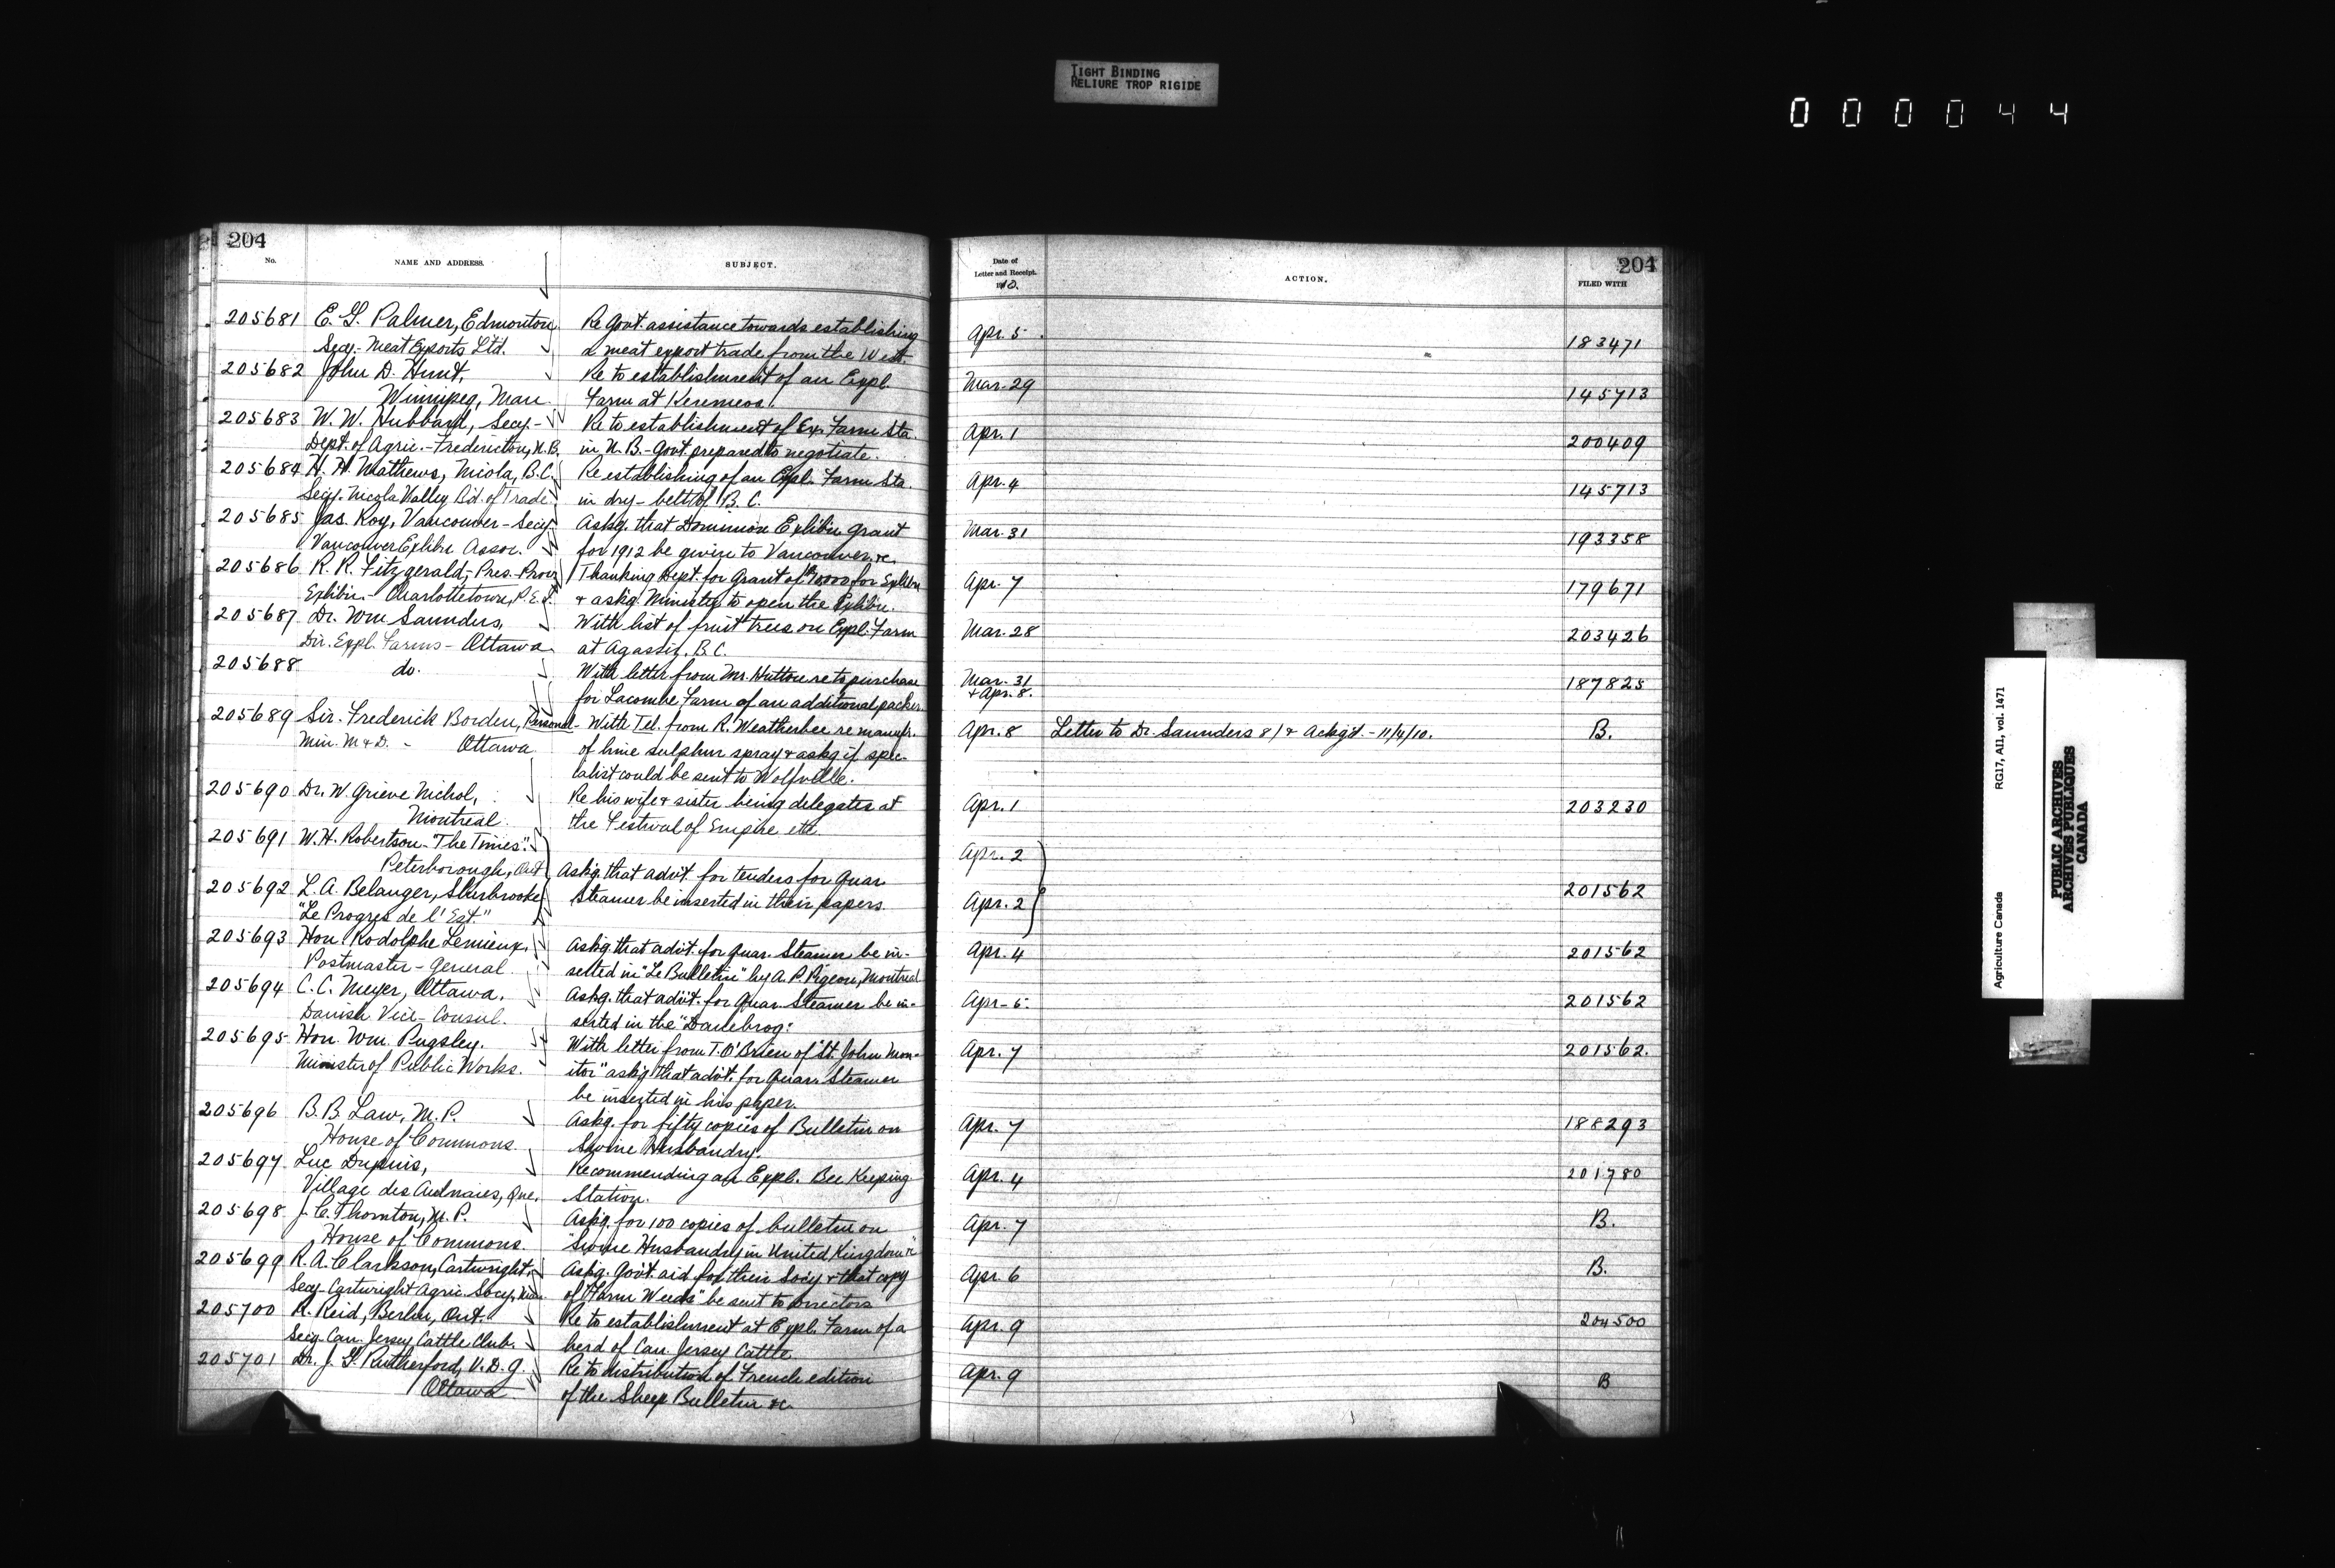 TIGHT BINDING
RELIURE TROP RIGIDE
000044
204
No.
NAME AND ADDRESS.
SUBJECT.
205681 E. G. Palmer, Edmonton
Secy. Meat Exports Ltd.
Re Govt. assistance towards establishing
a meat export trade from the West.
205682 John D. Hunt,
Winnipeg, Man.
Re to establishment of an Expl.
Farm at Keremeos.
205683 W. W. Hubbard, Secy.-
Dept. of Agric.- Fredericton, N.B.
Re to establishment of Ex. Farm Sta.
in N. B. - Govt. prepared to negotiate.
205684 H. H. Mathews, Nicola, B.C.
Secy. Nicola Valley Bd. of Trade
Re establishing of an Expl. Farm Sta.
in dry-belt of B. C.
205685 Jas. Roy, Vancouver - Secy.
Vancouver Exhibn Assoc.
Askg. that Dominion Exhibn grant
for 1912 be given to Vancouver &c.
205686 R. R. Fitzgerald, Pres. Prov.
Exhibn. - Charlottetown, P.E.I.
Thanking Dept. for Grant of for Exhibn
& askg. Minister to open the Exhibn.
205687 Dr. Wm Saunders,
Dir. Expl. Farms - Ottawa
With list of fruit trees on Expl. Farm
at Agassiz, B.C.
205688 do.
With letter from Mr. Hutton re to purchase
for Lacombe Farm of an additional packer
205689 Sir. Frederick Borden, Personal
Min. M & D. - Ottawa
- With Tel. from R. Weatherbee re manufr.
of lime sulphur spray & askg if spec-
ialist could be sent to Wolfville.
205690 Dr. W. Grieve Nichol,
Montreal
Re his wife & sister being delegates at
the Festival of Empire etc
205691 W. H. Robertson - "The Times".
Peterborough, Ont
205692 L. A. Belanger, Sherbrooke
"Le Progres de l'Est."
Askg. that advt. for tenders for Quar.
Steamer be inserted in their papers.
205693 Hon. Rodolphe Lemieux,
Postmaster - General
Askg. that advt. for Quar. Steamer be in-
serted in "Le Bulletin" by A. P. Pigeon, Montreal
205694 C. C. Meyer, Ottawa.
Danish Vice-Consul.
Askg. that advt. for Quar. Steamer be in-
serted in the "Danebrog."
205695 Hon. Wm. Pugsley.
Minister of Public Works.
With letter from T. O'Brien of "St. John Mon-
itor" askg that advt. for Quar. Steamer
be inserted in his paper.
205696 B. B. Law, M. P.
House of Commons.
Askg. for fifty copies of Bulletin on
Swine Husbandry.
205697 Luc Dupuis,
Village des Aulnaies, Que.
Recommending an Expl. Bee Keeping
Station.
205698 J. C. Thornton, M. P.
House of Commons.
Askg. for 100 copies of bulletin on
"Swine Husbandry in United Kingdom"
205699 R. A. Clarkson, Cartwright,
Secy. Cartwright Agric. Socy.
Askg. Govt. aid for their Socy & that copy
of "Farm Weeds" be sent to Directors
205700 R. Reid, Berlin, Ont.
Secy. Can. Jersey Cattle Club.
Re to establishment at Expl. Farm of a
herd of Can. Jersey Cattle
205701 Dr. J. G. Rutherford, V. D. G.
Ottawa
Re to distribution of French edition
of the Sheep Bulletin &c.
Date of
Letter and Receipt.
1910.
ACTION.
204
FILED WITH
Apr. 5 183471
Mar. 29 145713
Apr. 1 200409
Apr. 4 145713
Mar. 31 193358
Apr. 7 179671
Mar. 28 203426
Mar. 31
& Apr. 8. 187825
Apr. 8 Letter to Dr. Saunders 8/ & Ackg'd. - 11/4/10. B.
Apr. 1 203230
Apr. 2
Apr. 2 201562
Apr. 4 201562
Apr. 6. 201562
Apr. 7 201562.
Apr. 7 188293
Apr. 4 201780
Apr. 7 B.
Apr. 6 B.
Apr. 9 204500
Apr. 9 B
Agriculture Canada
RG17, AII, vol. 1471
PUBLIC ARCHIVES
ARCHIVES PUBLIQUES
CANADA